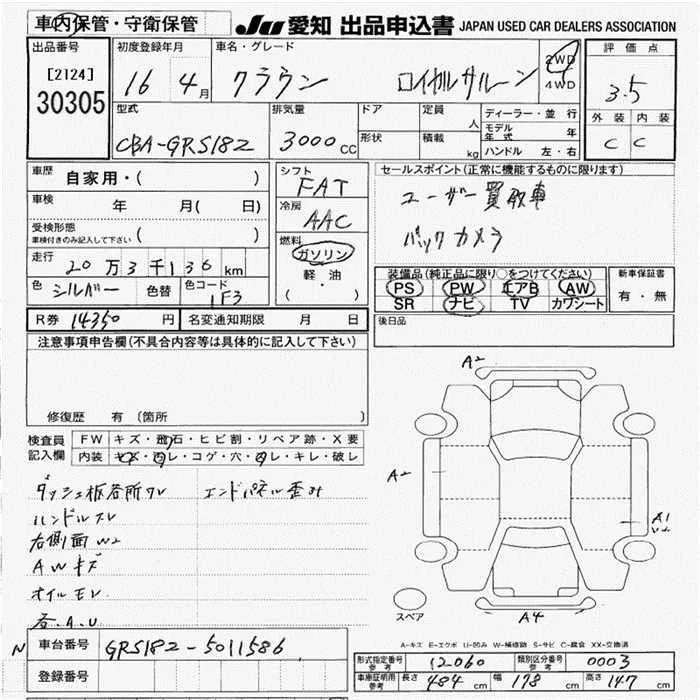 車内保管・守衛保管 JU 愛知 出品申込書 JAPAN USED CAR DEALERS ASSOCIATION
出品番号 初度登録年月 車名・グレード 2WD 4WD 評価点
[2124] 30305 16 4月 クラウン ロイヤルサルーン 3.5
型式 排気量 ドア 定員 人 ディーラー・並行 外装 内装
CBA-GRS182 3000cc 形状 積載 kg モデル年式 年 C C
ハンドル 左・右
車歴 自家用・( ) シフト FAT セールスポイント(正常に機能するものに限ります)
車検 年 月( 日) 冷房 AAC ユーザー買取車
受検形態 車検付きのみ記入して下さい ( ) 燃料 ガソリン バックカメラ
走行 20万3千136km 軽・油 装備品(純正品に限り○をつけてください) 新車保証書
色 シルバー 色替 色コード 1F3 ( ・ ) PS PW エアB AW 有・無
SR ナビ TV カワシート
R券 14350円 名変通知期限 月 日 後日品
注意事項申告欄(不具合内容等は具体的に記入して下さい)
A2
修復歴 有 (箇所 )
検査員記入欄 FW キズ・飛石・ヒビ割・リペア跡・X要
内装 キズ・凹レ・コゲ・穴・凹レ・キレ・破レ
A2
ダッシュ板各所ワレ エンドパネル歪み
ハンドルスレ
A1
右側面W2
AWキズ
オイルモレ
各.A.U
スペア A4
A-キズ E-エクボ U-凹み W-補修跡 S-サビ C-腐食 XX-交換済
N 車台番号 GRS182-5011586
登録番号
形式指定番号 参考 12060 類別区分番号 参考 0003
車庫証明用 参考 長さ 484cm 幅 178cm 高さ 147cm